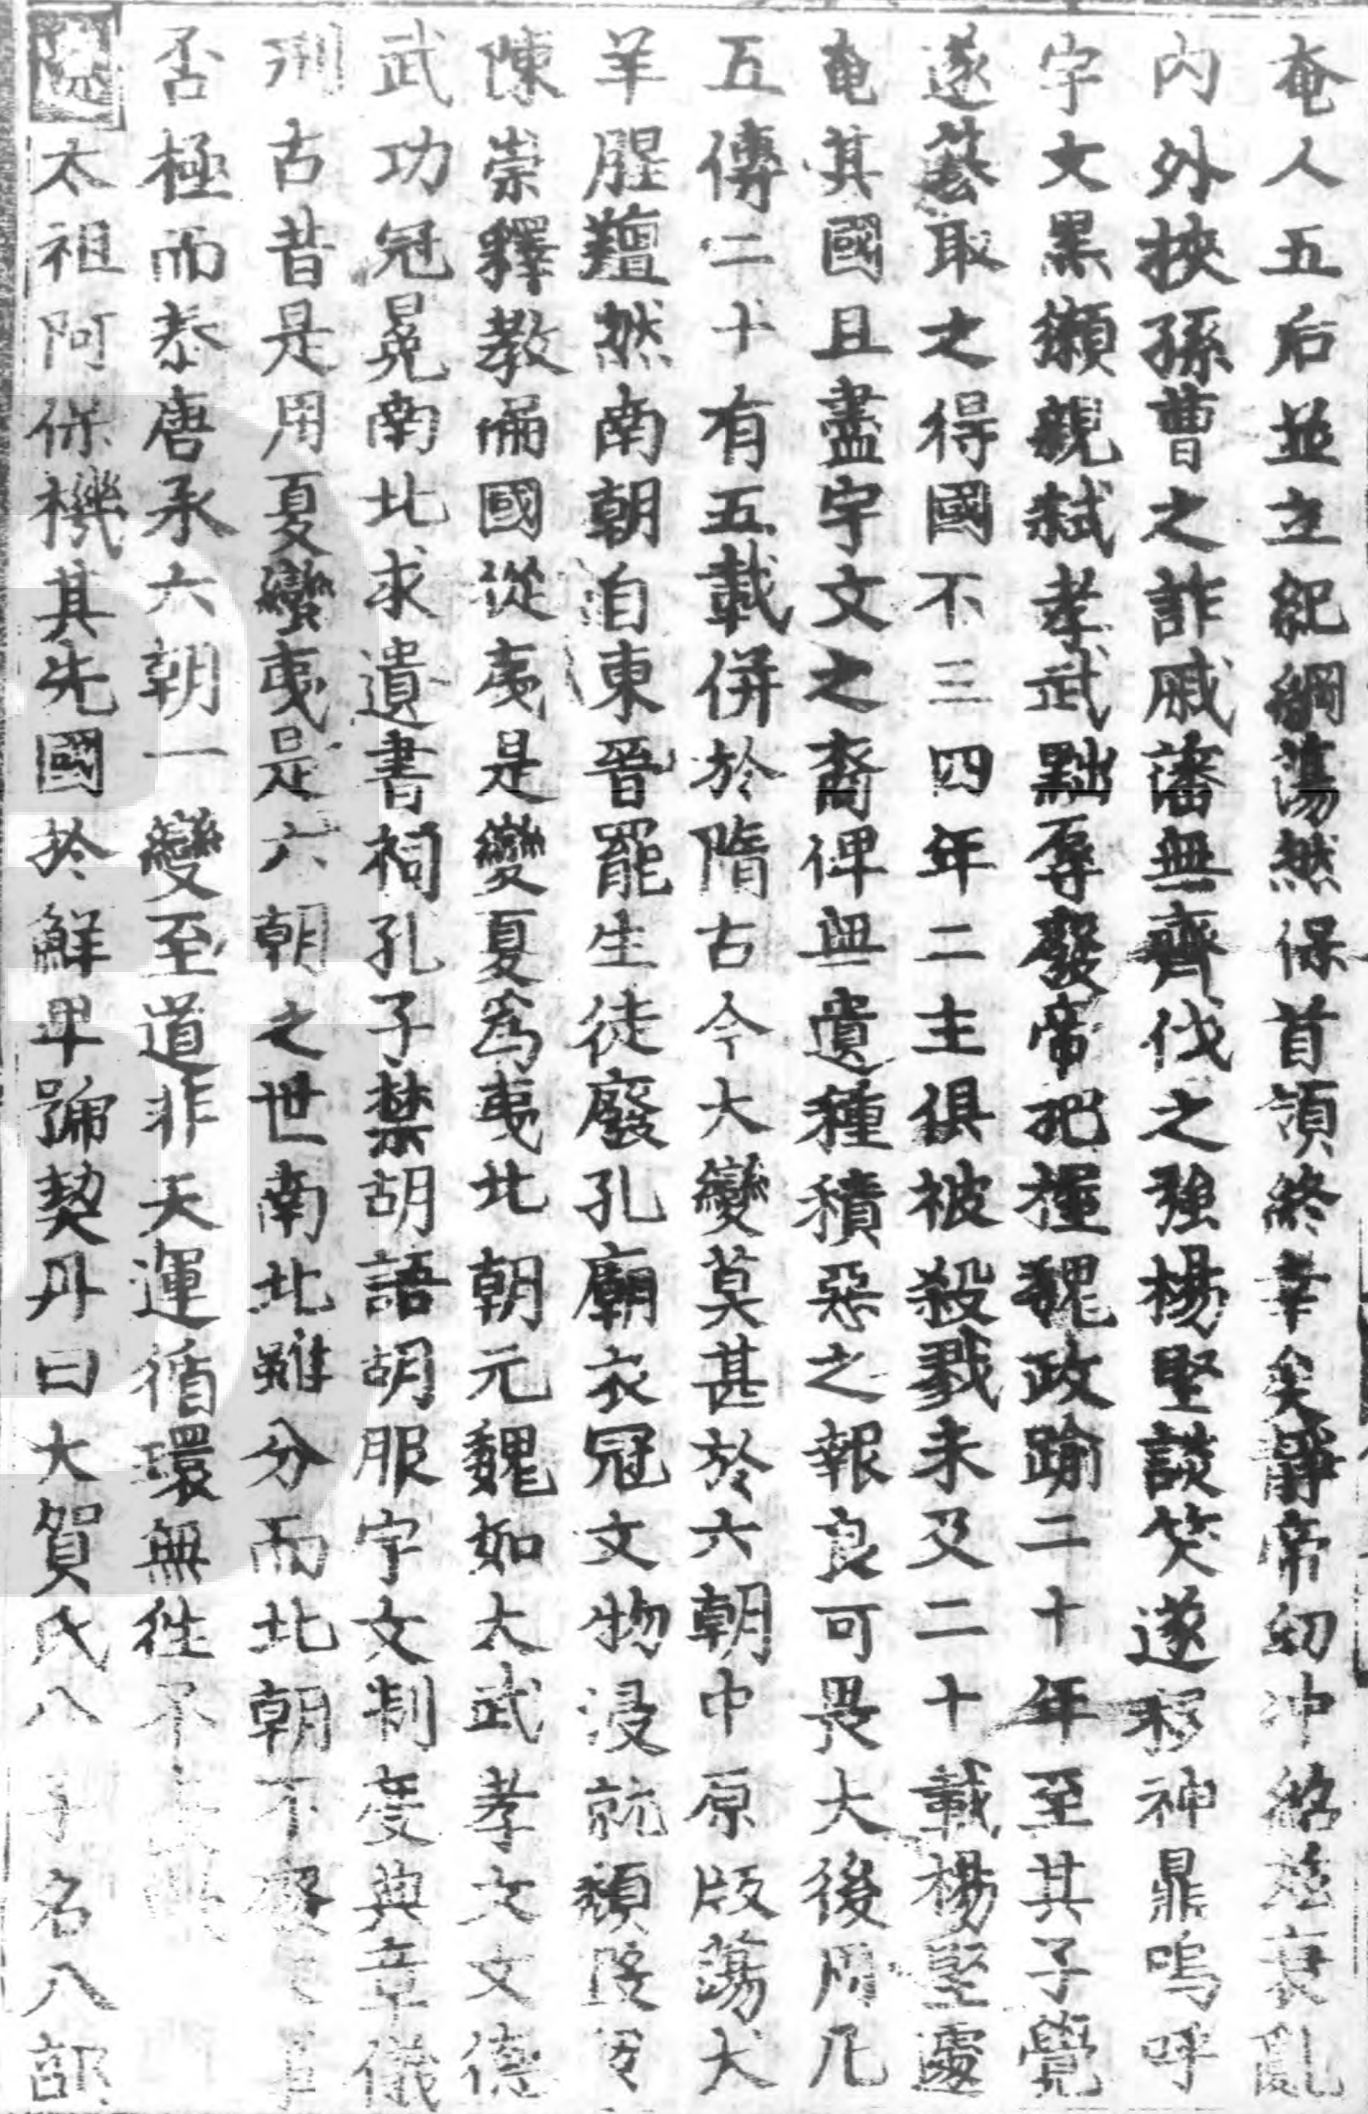 奄人五后並立紀綱蕩然保首領終幸矣靜帝幼冲紹茲衰亂
内外挾孫曹之詐戚藩無齊伐之強楊堅談笑遂移神鼎嗚呼
宇文黒獺親弑孝武黜辱廢帝把握魏政踰二十年至其子覺
遂簒取之得國不三四年二主俱被殺戮未及二十載楊堅遽
奄其國且盡宇文之裔俾無遺種積惡之報良可畏大後周凡
五傳二十有五載併於隋古今大變莫甚於六朝中原版蕩犬
羊腥羶然南朝自東晉罷生徒廢孔廟衣冠文物浸就頽
陳崇釋教徧國從夷是變夏爲夷北朝元魏如太武孝文文德
武功冠冕南北求遺書祠孔子禁胡語胡服宇文制度典章儀
刑古昔是用夏變夷是六朝之世南北雖分而北朝不
否極而泰唐承六朝一變至道非天運循環無徃不
太祖阿保機其先國於鮮卑號契丹曰大賀氏八子名八部